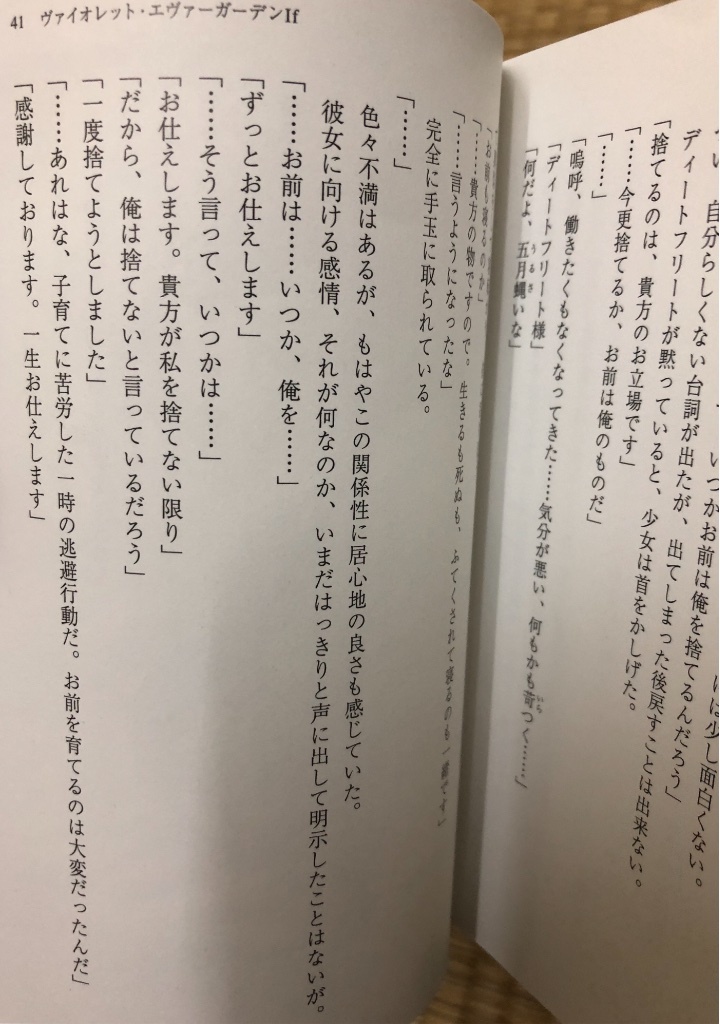 自分らしくない台詞が出たが、出てしまった後戻すことは出来ない。
ディートフリートが黙っていると、少女は首をかしげた。
「捨てるのは、貴方のお立場です」
「……今更捨てるか、お前は俺のものだ」
「……」
「嗚呼、働きたくもなくなってきた……気分が悪い、何もかも苛つく……」
「ディートフリート様」
「何だよ、五月蝿いな」
「お前も寝るのか」
「……貴方の物ですので。生きるも死ぬも、ふてくされて寝るのも一緒です」
「……言うようになったな」
完全に手玉に取られている。
「……」
色々不満はあるが、もはやこの関係性に居心地の良さも感じていた。
彼女に向ける感情、それが何なのか、いまだはっきりと声に出して明示したことはないが。
「……お前は……いつか、俺を……」
「ずっとお仕えします」
「……そう言って、いつかは……」
「お仕えします。貴方が私を捨てない限り」
「だから、俺は捨てないと言っているだろう」
「一度捨てようとしました」
「……あれはな、子育てに苦労した一時の逃避行動だ。お前を育てるのは大変だったんだ」
「感謝しております。一生お仕えします」
41 ヴァイオレット・エヴァーガーデンIf